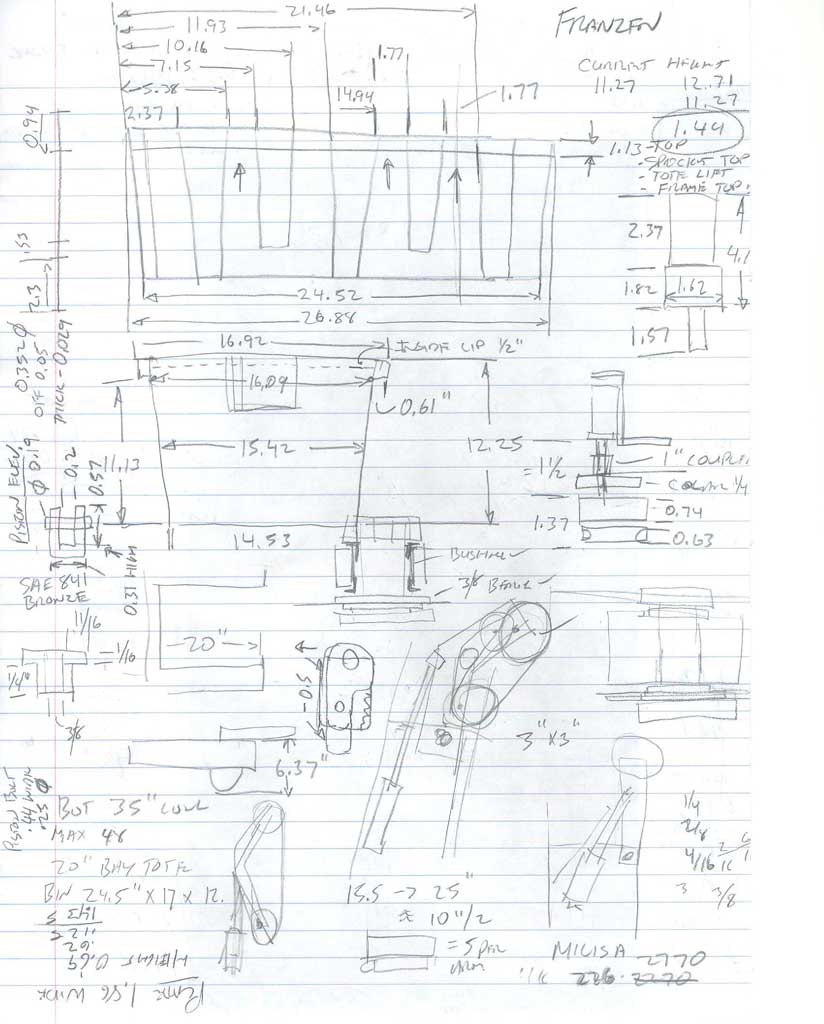 21.46
FRANZEN
11.93
10.16
1.77
7.15
CURRENT HEIGHT
11.27 12.71
11.27
1.44
5.38
14.94
1.77
2.37
0.94
1.13
-TOP
- SPROCKET TOP
- TOTE LIFT
- FRAME TOP
2.37
4.1
.53
2.3
24.52
1.82
1.62
26.88
1.57
16.92
INSIDE LIP 1/2"
0.352 Ø
OFF 0.05
THICK - 0.029
16.09
0.61"
11.13
15.42
12.25
= 1 1/2
1" COUPLE
COLLAR 1/4
PISTON ELEV.
Ø 0.19
0.2
0.57
1.37
0.74
0.63
14.53
BUSHING
3/8 BEARING
0.31 HIGH
SAE 841
BRONZE
11/16
1/16
1/4"
3/8
20"
0.5
3" X 3"
6.37"
PISTON BOLT
.44 WIDE
.25 Ø
BOT 35" LOW
MAX 48
20" BAY TOTE
BIN 24.5" X 17 X 12.
15.5 → 25"
10"/2
= 5 PER
ARM
1/4
2/8
4/16
3 3/8
MILISA
2770
226. 2270
.62
HEIGHT 0.69
1.86 WIDE